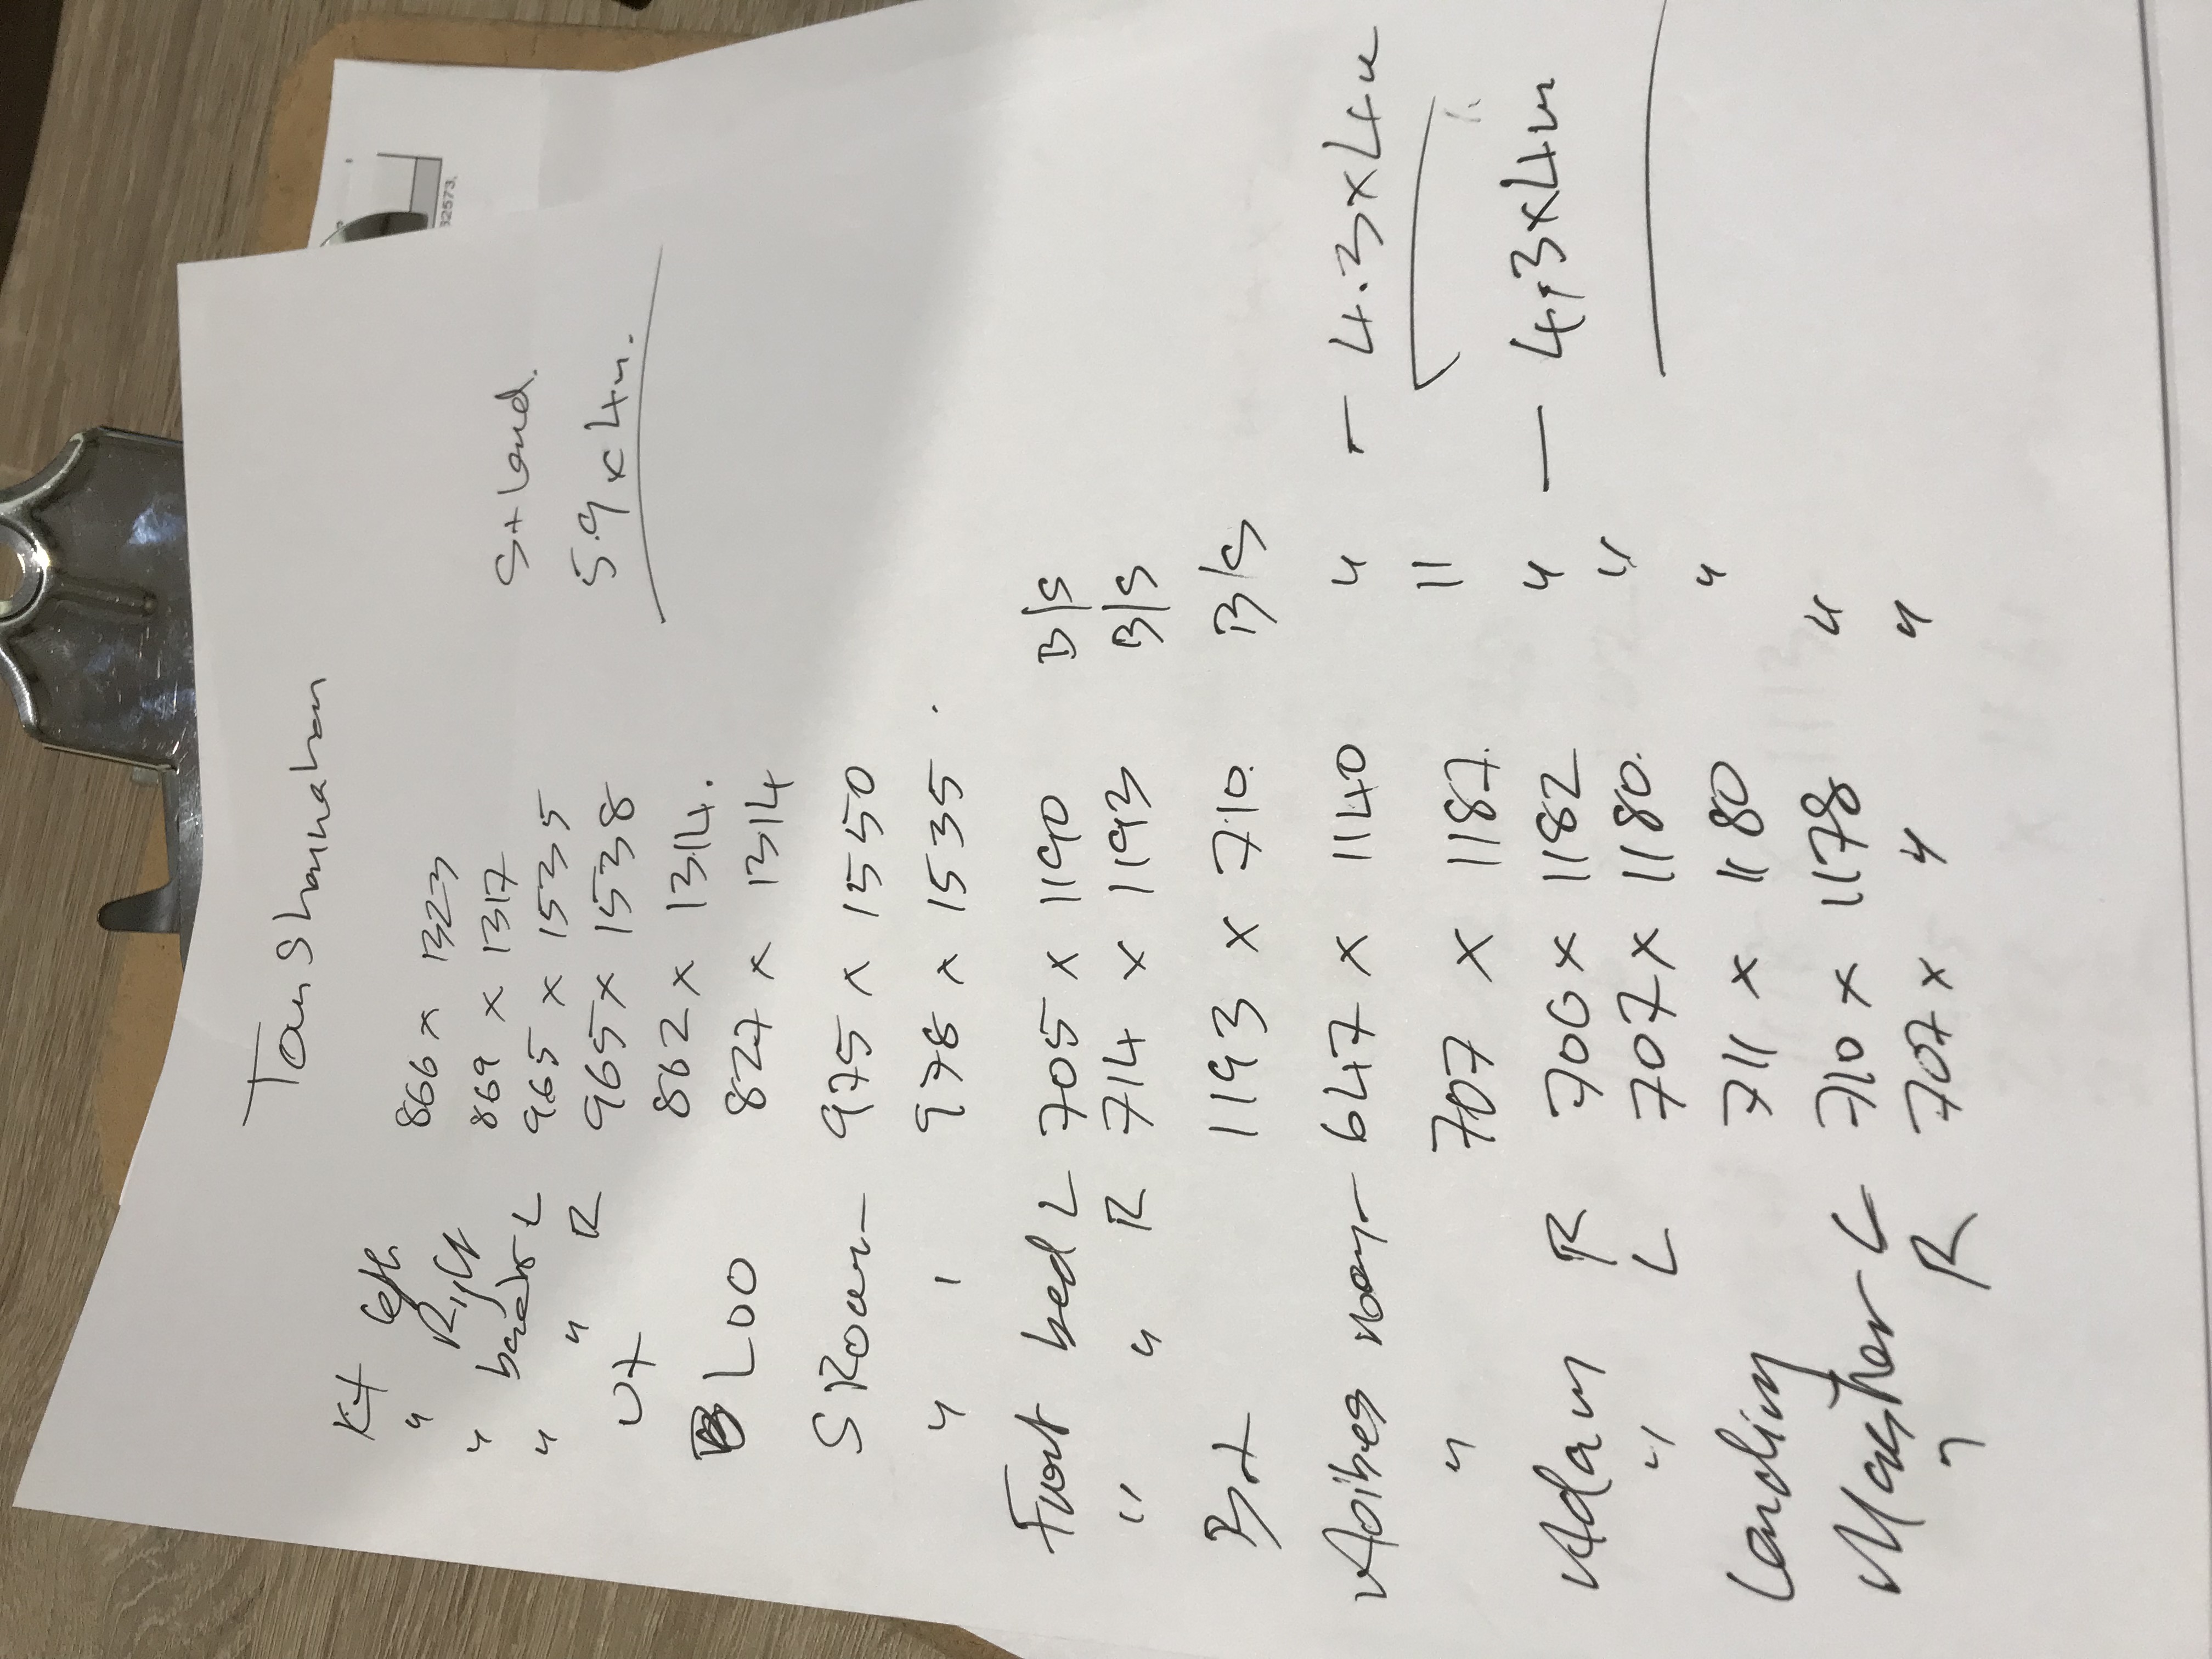 Tom Shanahan
Kit left 866 x 1323
" Right 869 x 1317
" back L 965 x 1535
" " R 965 x 1538
Ut 862 x 1314.
LOO 827 x 1314
St Land.
5.9 x 4m.
S Room 975 x 1550
" 1 978 x 1535.
Front bed L 705 x 1190 B/S
" " R 714 x 1193 B/S
Bt 1193 x 710. B/S
Aoibes room 647 x 1140 " - 4.3 x 4m
" 707 x 1187. "
Adam R 700 x 1182 " - 4.3 x 4m
" L 707 x 1180. "
Landing 711 x 1180 "
Master L 710 x 1178 "
" R 707 x " "
32573,